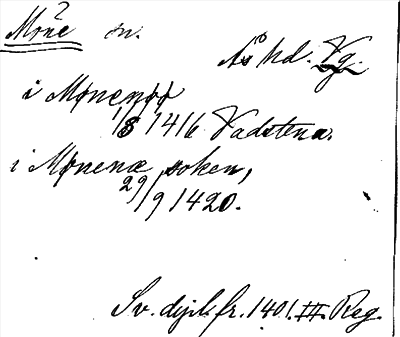 Møne sn. Ås hd. Vg.
i Mønenøø
1/8 1416 Vadstena.
i Mønenæ soken,
29/9 1420.
Sv. dipl. fr. 1401. III. Reg.